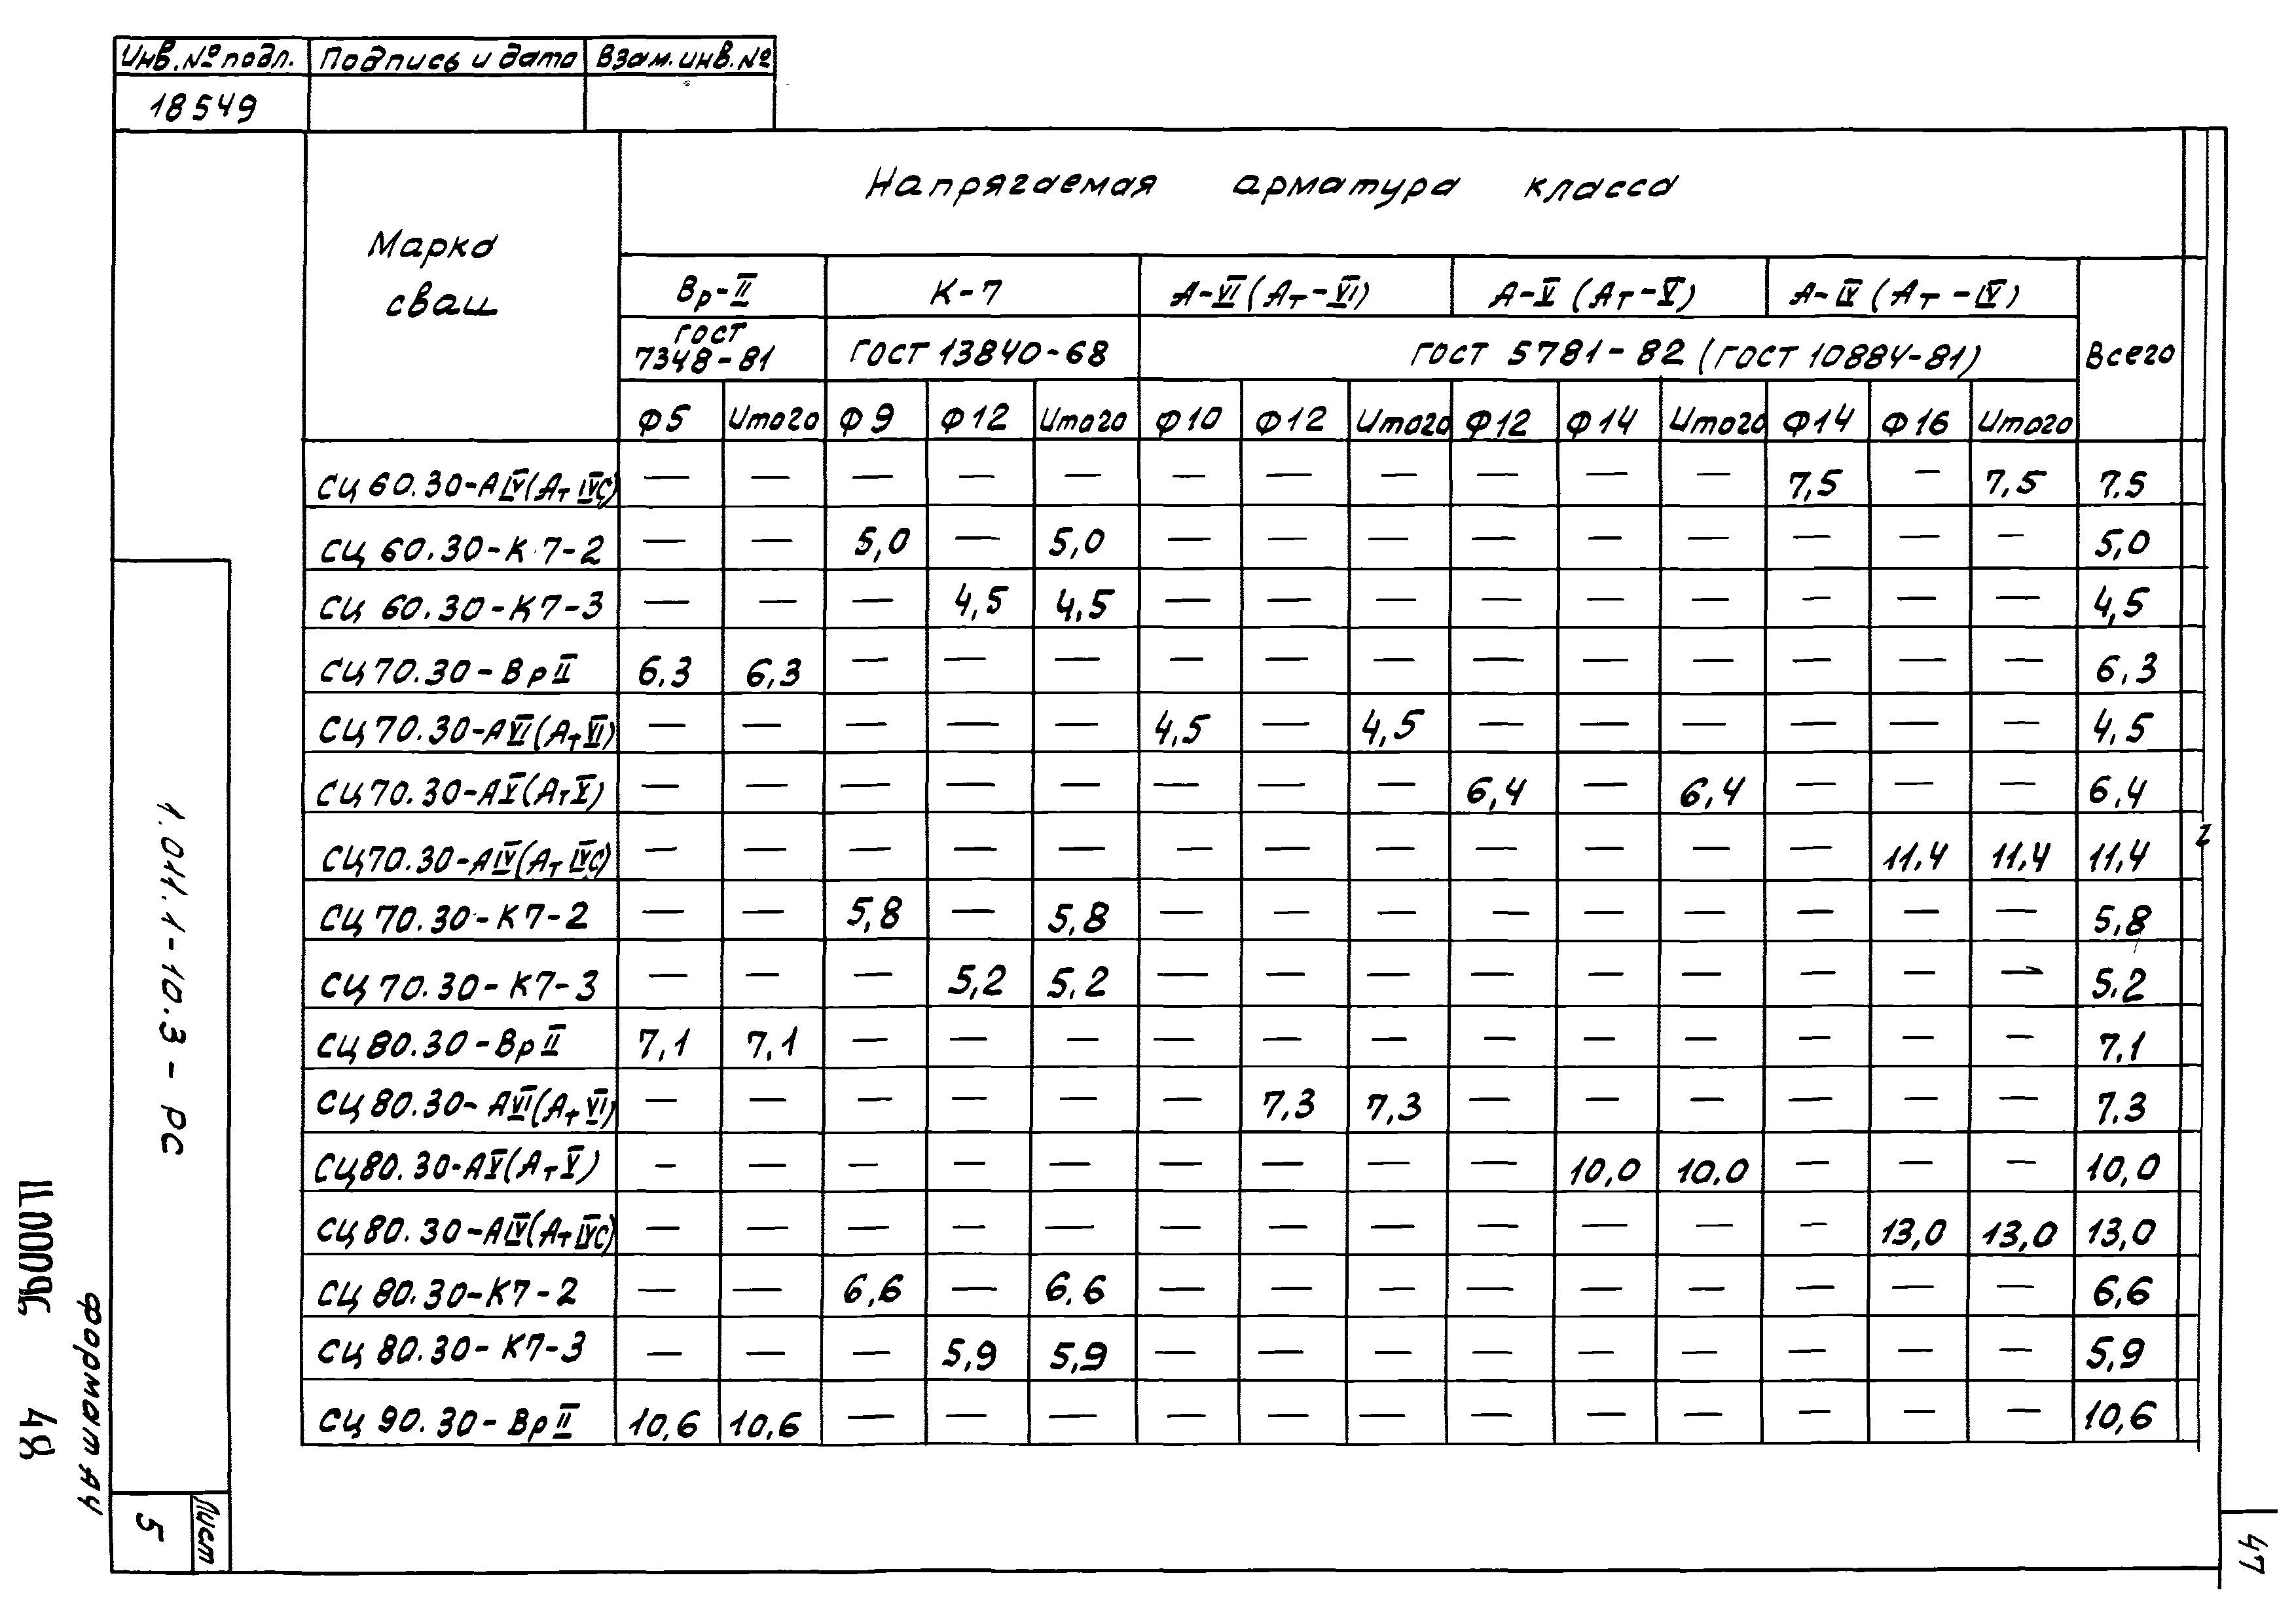 Инв. № подл. Подпись и дата Взам. инв. №
18549
Марка сваи
Напрягаемая арматура класса
Вр-II К-7 А-VI (Ат-VI) А-V (Ат-V) А-IV (Ат-IV) Всего
ГОСТ 7348-81 ГОСТ 13840-68 ГОСТ 5781-82 (ГОСТ 10884-81)
Ф5 Итого Ф9 Ф12 Итого Ф10 Ф12 Итого Ф12 Ф14 Итого Ф14 Ф16 Итого
СЦ 60.30-АIV(АтIVС) — — — — — — — — — — — 7,5 — 7,5 7.5
СЦ 60.30-К7-2 — — 5,0 — 5,0 — — — — — — — — — 5,0
СЦ 60.30-К7-3 — — — 4,5 4,5 — — — — — — — — — 4,5
СЦ 70.30-ВрII 6.3 6,3 — — — — — — — — — — — — 6,3
СЦ 70.30-АVI(АтVI) — — — — — 4,5 — 4,5 — — — — — — 4,5
СЦ 70.30-АV(АтV) — — — — — — — — 6,4 — 6,4 — — — 6,4
СЦ 70.30-АIV(АтIVС) — — — — — — — — — — — — 11,4 11,4 11,4
СЦ 70.30-К7-2 — — 5,8 — 5,8 — — — — — — — — — 5,8
СЦ 70.30-К7-3 — — — 5,2 5,2 — — — — — — — — — 5,2
СЦ 80.30-ВрII 7,1 7,1 — — — — — — — — — — — — 7,1
СЦ 80.30-АVI(АтVI) — — — — — — 7,3 7,3 — — — — — — 7,3
СЦ 80.30-АV(АтV) — — — — — — — — — 10,0 10,0 — — — 10,0
СЦ 80.30-АIV(АтIVС) — — — — — — — — — — — — 13,0 13,0 13,0
СЦ 80.30-К7-2 — — 6,6 — 6,6 — — — — — — — — — 6,6
СЦ 80.30-К7-3 — — — 5,9 5,9 — — — — — — — — — 5,9
СЦ 90.30-ВрII 10,6 10,6 — — — — — — — — — — — — 10,6
1.011.1-10.3 - РС
Лист
5
формат А4
Ц00096 48
47